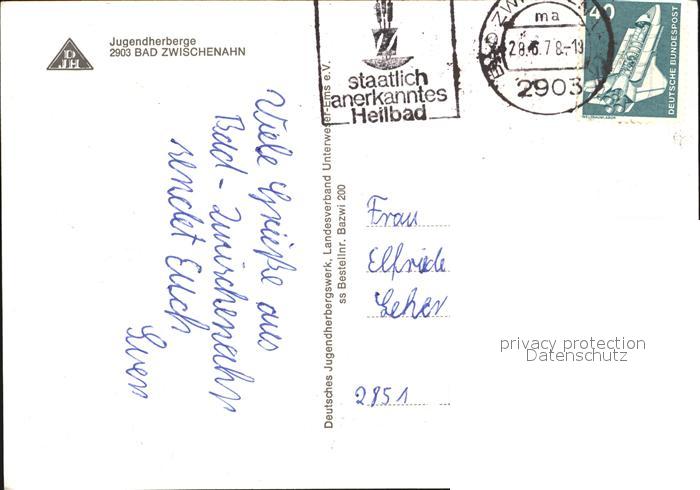 DJH
Jugendherberge
2903 BAD ZWISCHENAHN
Viele Grüße aus
Bad-Zwischenahn
sendet Euch
Sven
Deutsches Jugendherbergswerk, Landesverband Unterweser-Ems e.V.
ss Bestellnr. Bazwi 200
staatlich
anerkanntes
Heilbad
BAD ZWISCHENAHN
ma
28.6.78-19
2903
40
DEUTSCHE BUNDESPOST
Frau
Elfriede
2851
privacy protection
Datenschutz